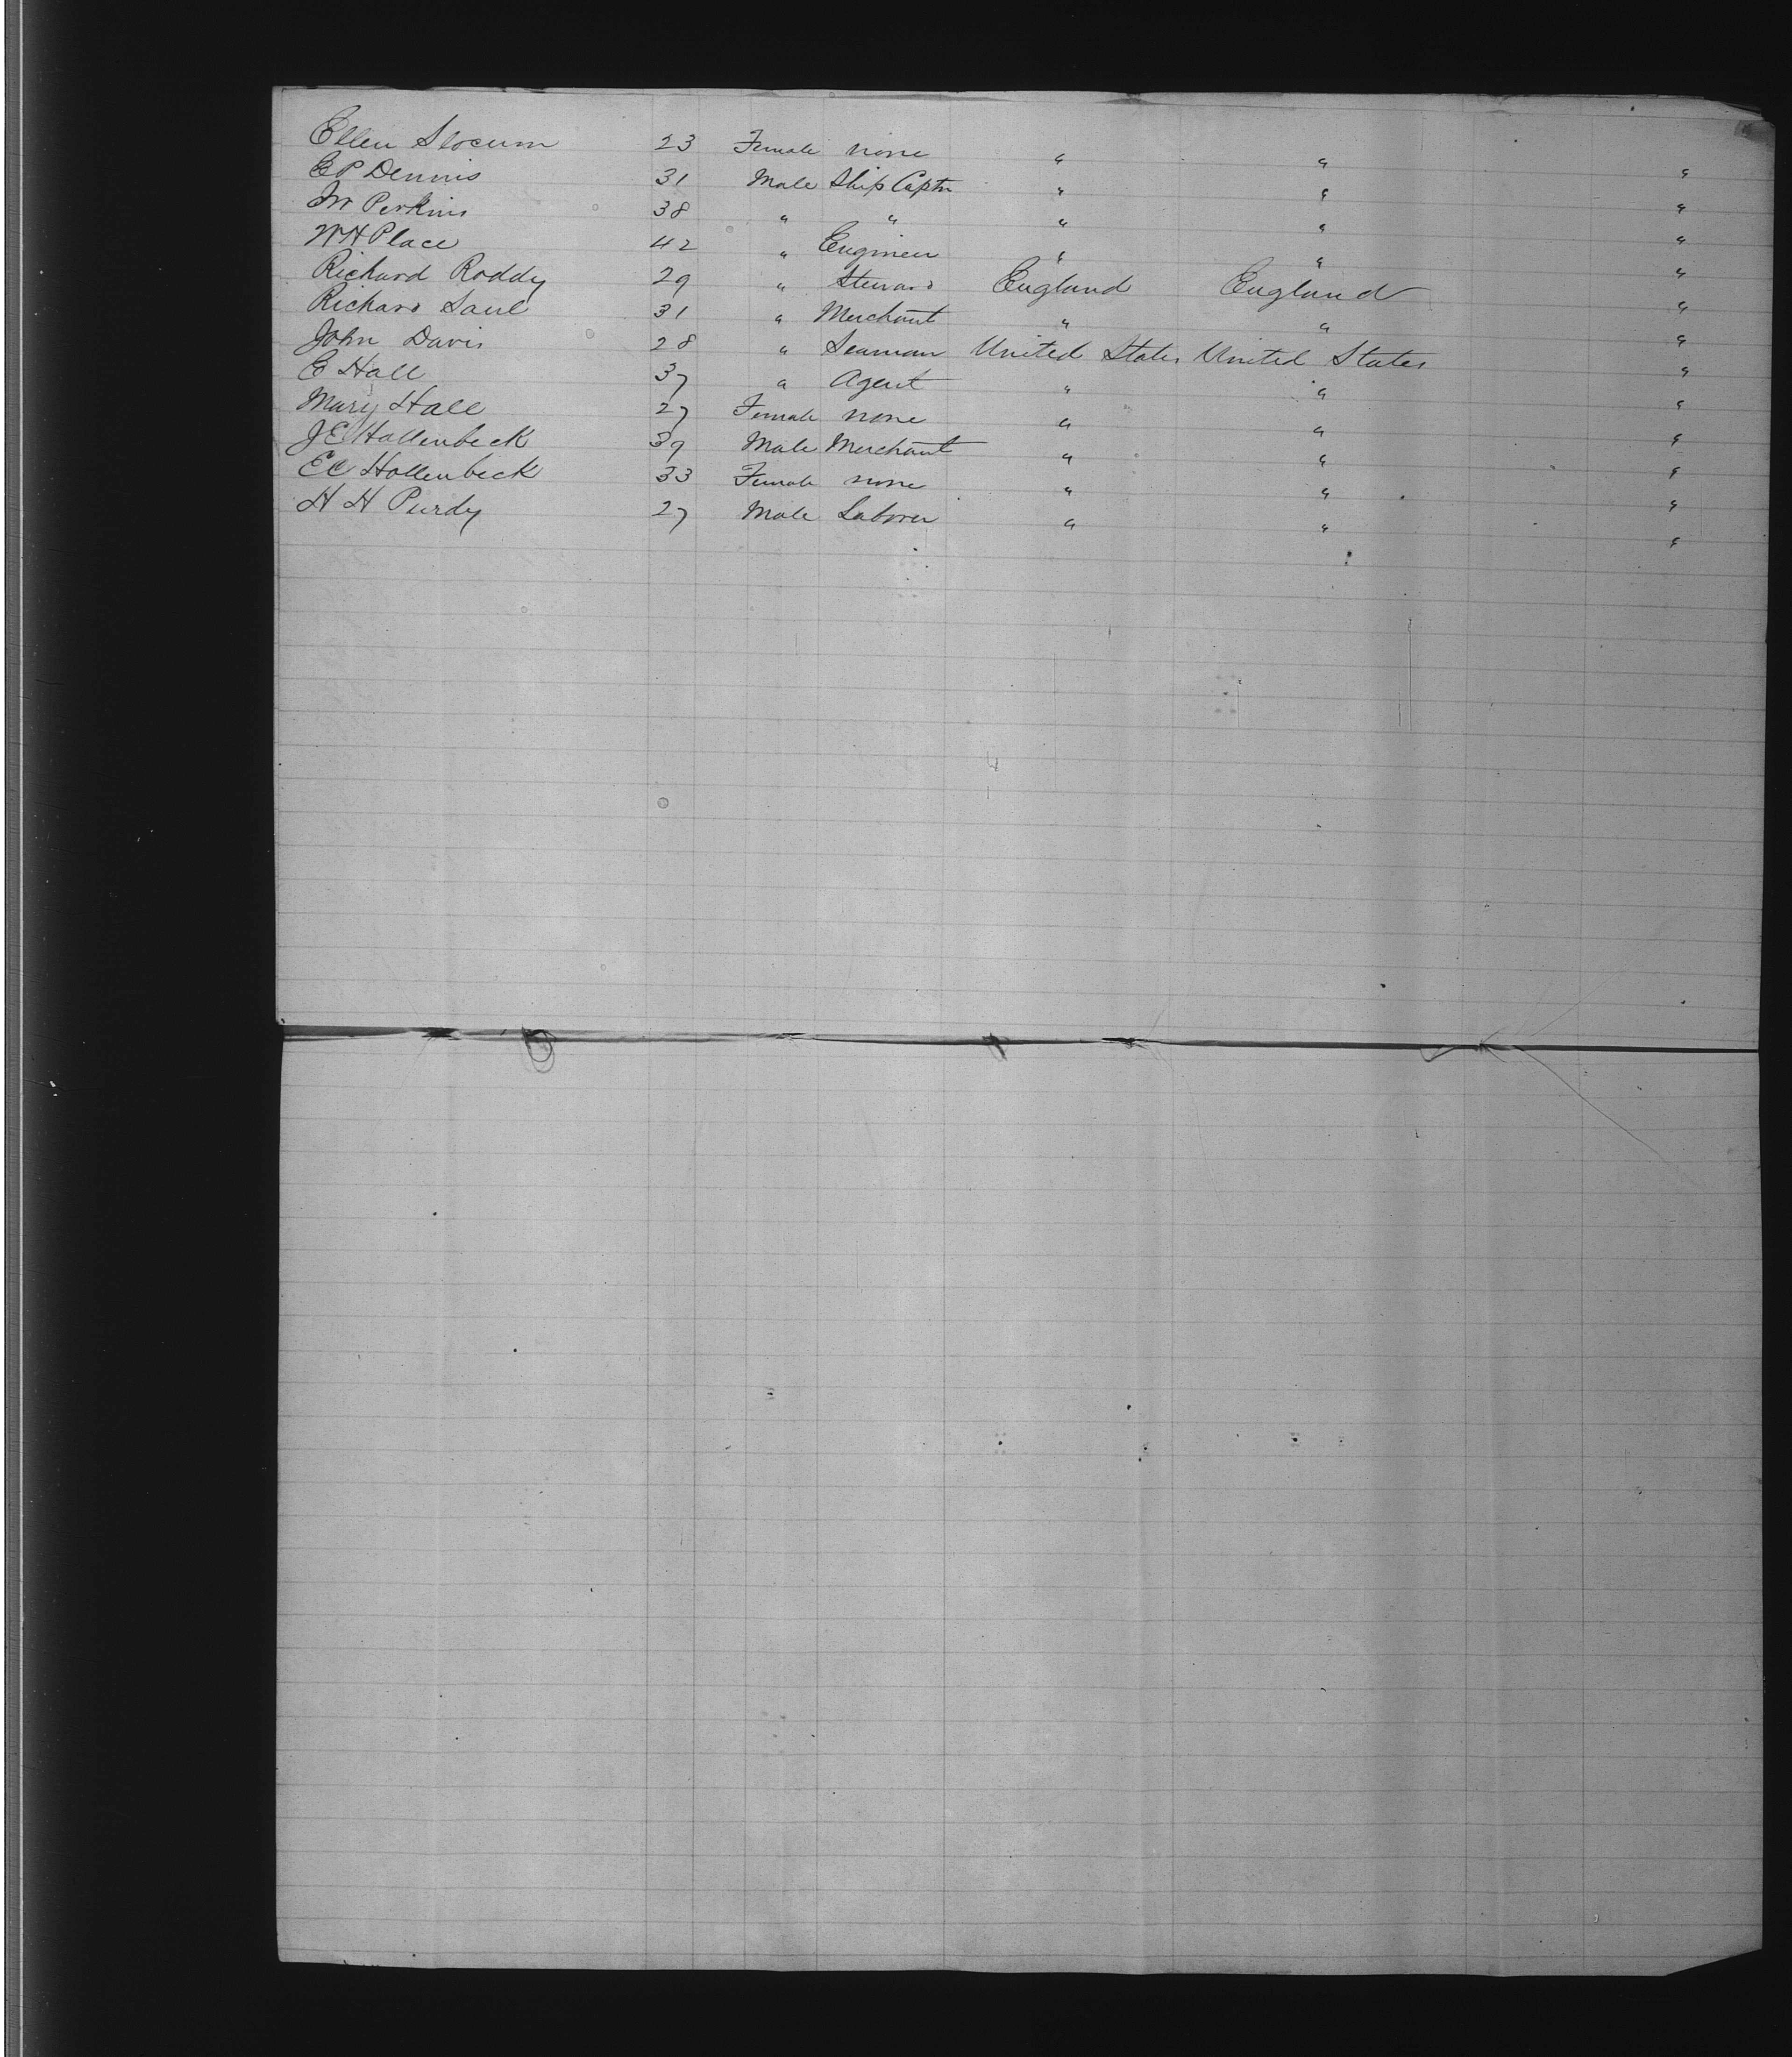 Ellen Slocum 23 Female none " " "
EP Dennis 31 Male Ship Captn " " "
Perkins 38 " " " " "
WH Place 42 " Engineer " " "
Richard Roddy 29 " Steward England England "
Richard Saul 31 " Merchant " " "
John Davis 28 " Seaman United States United States "
E Hall 37 " Agent " " "
Mary Hall 27 Female none " " "
JE Hollenbeck 39 Male Merchant " " "
EC Hollenbeck 33 Female none " " "
H H Purdy 27 Male Laborer " " "